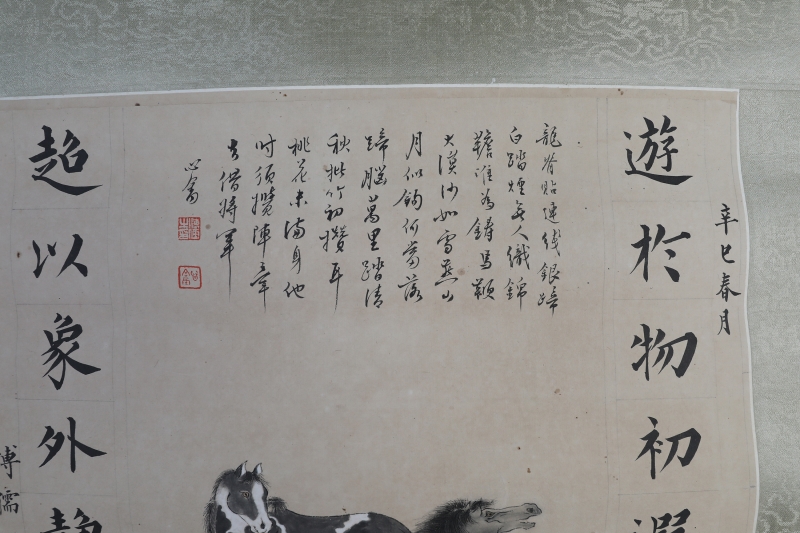 辛巳春月
遊於物初遐
龍脊貼連錢銀蹄
白踏煙無人織錦
韂誰為鑄馬
大漠沙如雪燕山
月似鉤何當落
蹄腦萬里踏清
秋批竹初攢耳
桃花未滿身他
時須攪陣牽
去借將軍
心畬
超以象外靜
溥儒